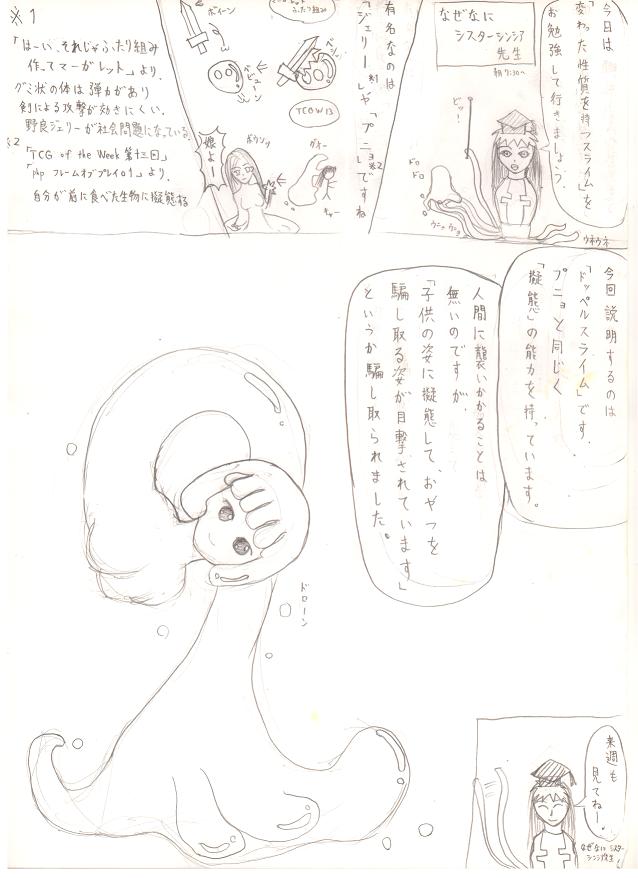 今日は
「変わった性質を持つスライム」を
お勉強して行きましょう。
なぜなに
シスターシンシア
先生
朝9:30~
ビッ!
ドロ
ドロ
ウニョウニョ
ウネウネ
有名なのは
「ジェリー※1」や「プニョ※2」ですね
ふたり組み
ボイーン
ビューン
TCGW13
ボウンッ
娘よー
グオー
キャー
※1
「はーい、それじゃふたり組み
作ってマーガレット」より。
グミ状の体は弾力があり
剣による攻撃が効きにくい。
野良ジェリーが社会問題になっている。
※2
「TCG of the Week 第十三回」
「php フレームオブプレイ01」より。
自分が前に食べた生物に擬態する
今回説明するのは
「ドッペルスライム」です。
プニョと同じく
「擬態」の能力を持っています。
人間に襲いかかることは
無いのですが、
「子供の姿に擬態して、おやつを
騙し取る姿が目撃されています」
というか騙し取られました。
ドローン
来週も
見てねー。
なぜなに シスター
シンシア先生!